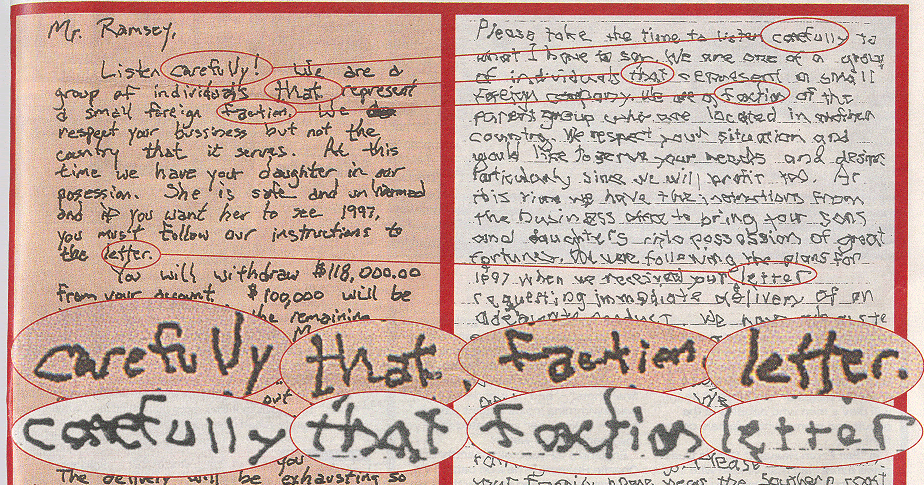 Mr. Ramsey,
Listen carefully! We are a
group of individuals that represent
a small foreign faction. We
respect your bussiness but not the
country that it serves. At this
time we have your daughter in our
posession. She is safe and unharmed
and if you want her to see 1997,
you must follow our instructions to
the letter.
You will withdraw $118,000.00
from your account. $100,000 will be
the remaining
out
you
The delivery will be exhausting so
Please take the time to listen carefully to
what I have to say. We are one of a group
of individuals that represent a small
foreign company. We are a faction of the
parent group who are located in another
country. We respect your situation and
would like to serve your needs and desires
particularly since we will profit too. At
this time we have the instructions from
the business office to bring your sons
and daughters into possession of great
fortunes. We were following the plans for
1997 when we received your letter
requesting immediate delivery of an
We have
carefully that faction. letter.
carefully that faction letter
your family home near the southern coast